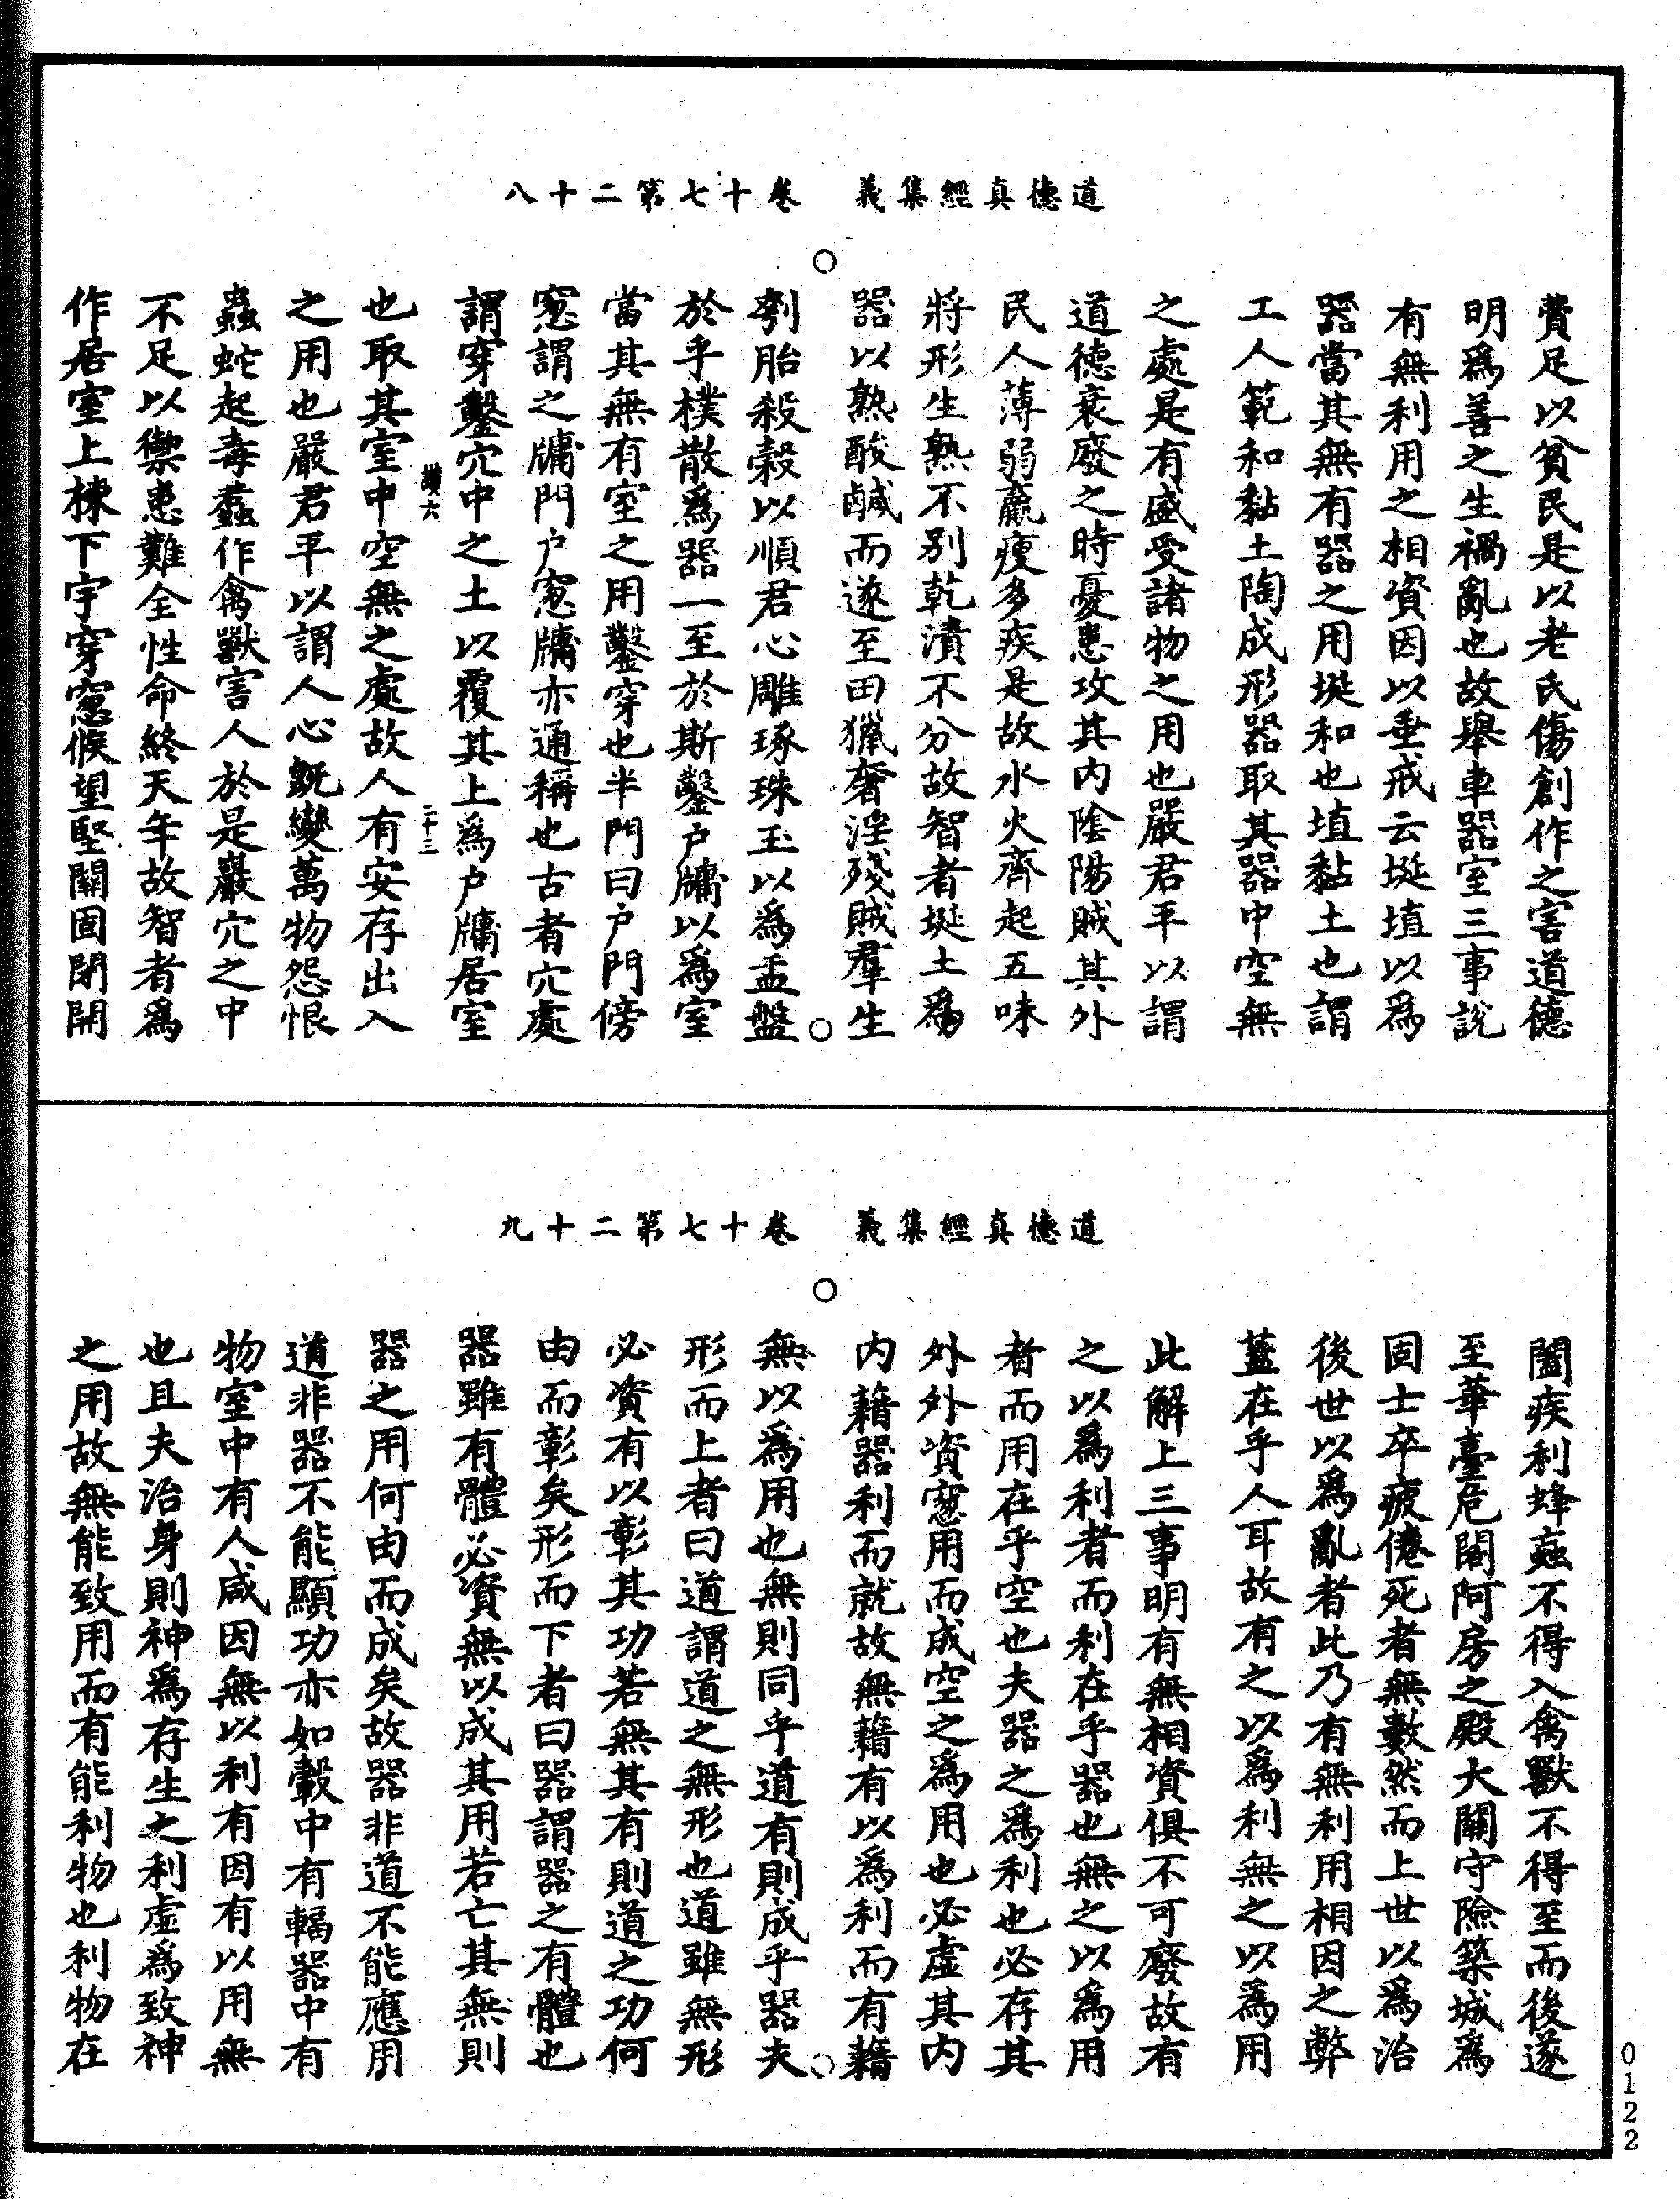 道德真經集義　卷十七第二十八
費足以貧民是以老氏傷創作之害道德
明爲善之生禍亂也故舉車器室三事說
有無利用之相資因以垂戒云埏埴以爲
器當其無有器之用埏和也埴黏土也謂
工人範和黏土陶成形器取其器中空無
之處是有盛受諸物之用也嚴君平以謂
道德衰廢之時憂患攻其内陰陽賊其外
民人薄弱羸瘦多疾是故水火齊起五味
將形生熟不別乾漬不分故智者埏土爲
器以熟酸鹹而遂至田獵奢淫殘賊羣生
刳胎殺鷇以順君心雕琢珠玉以為盂盤
於乎樸散爲器一至於斯鑿户牖以爲室
當其無有室之用鑿穿也半門曰户門傍
窻謂之牖門户窻牖亦通稱也古者穴處
謂穿鑿穴中之土以覆其上爲户牖居室
讃六　二十三
也取其室中空無之處故人有安存出入
之用也嚴君平以謂人心既變萬物怨恨
蟲蛇起毒蠚作禽獸害人於是巖穴之中
不足以禦患難全性命終天年故智者爲
作居室上棟下宇穿窻候望堅關固閉開
道德真經集義　卷十七第二十九
闔疾利蜂蠆不得入禽獸不得至而後遂
至華臺危閣阿房之殿大關守險築城爲
固士卒疲倦死者無數然而上世以爲治
後世以爲亂者此乃有無利用相因之弊
蓋在乎人耳故有之以爲利無之以爲用
此解上三事明有無相資俱不可廢故有
之以爲利者而利在乎器也無之以爲用
者而用在乎空也夫器之爲利也必存其
外外資窻用而成空之爲用也必虚其内
内藉器利而就故無藉有以爲利而有藉
無以爲用也無則同乎道有則成乎器夫
形而上者曰道謂道之無形也道雖無形
必資有以彰其功若無其有則道之功何
由而彰矣形而下者曰器謂器之有體也
器雖有體必資無以成其用若亡其無則
器之用何由而成矣故器非道不能應用
道非器不能顯功亦如轂中有輻器中有
物室中有人咸因無以利有因有以用無
也且夫治身則神爲存生之利虚爲致神
之用故無能致用而有能利物也利物在
0122